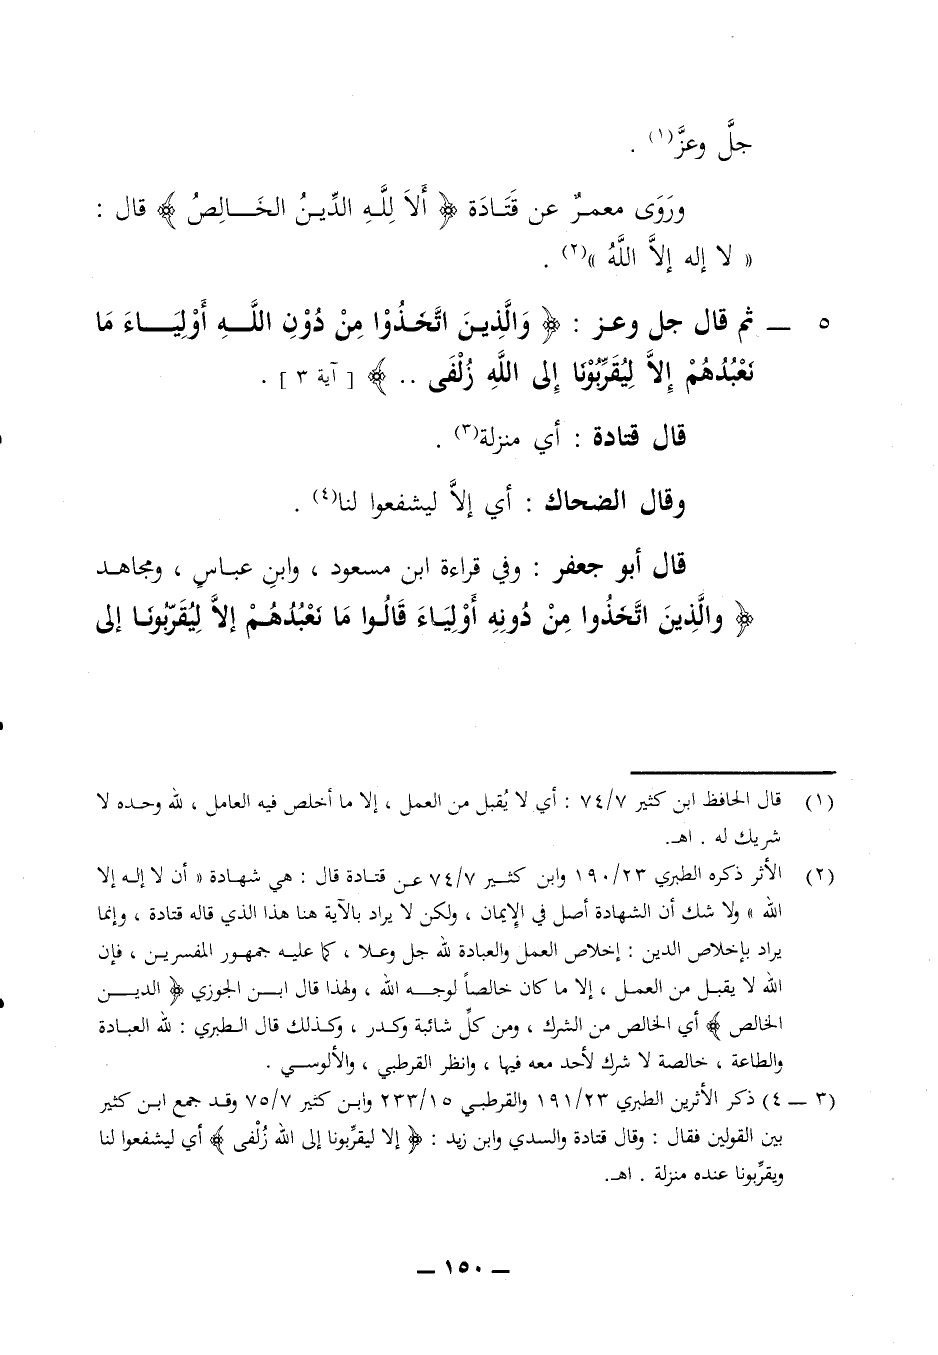 جلَّ وعزَّ(١) .
ورَوَى معمرٌ عن قَتَادَة ﴿ أَلاَ لِلَّهِ الدِّينُ الخَالِصُ ﴾ قال :
« لا إله إلاَّ اللَّهُ »(٢) .
٥ ــ ثم قال جل وعز : ﴿ وَالَّذِينَ اتَّخَذُوْا مِنْ دُوْنِ اللَّهِ أَوْلِيَاءَ مَا
نَعْبُدُهُمْ إِلاَّ لِيُقَرِّبُوْنَا إِلى اللَّهِ زُلْفَى .. ﴾ [ آية ٣ ] .
قال قتادة : أي منزلة(٣) .
وقال الضحاك : أي إلاَّ ليشفعوا لنا(٤) .
قال أبو جعفر : وفي قراءة ابن مسعود ، وابنِ عباسٍ ، ومجاهد
﴿ والَّذِينَ اتَّخَذُوا مِنْ دُونِهِ أَوْلِيَاءَ قَالُوا مَا نَعْبُدُهُمْ إلاَّ لِيُقَرّبُونَا إلى
(١) قال الحافظ ابن كثير ٧٤/٧ : أي لا يُقبل من العمل ، إلا ما أخلص فيه العامل ، لله وحده لا
شريك له . اهـ.
(٢) الأثر ذكره الطبري ١٩٠/٢٣ وابن كثير ٧٤/٧ عن قتادة قال : هي شهادة « أن لا إله إلا
الله » ولا شك أن الشهادة أصل في الإيمان ، ولكن لا يراد بالآية هنا هذا الذي قاله قتادة ، وإنما
يراد بإخلاص الدين : إخلاص العمل والعبادة لله جل وعلا ، كما عليه جمهور المفسرين ، فإن
الله لا يقبل من العمل ، إلا ما كان خالصاً لوجه الله ، ولهذا قال ابن الجوزي ﴿ الدين
الخالص ﴾ أي الخالص من الشرك ، ومن كلِّ شائبة وكدر ، وكذلك قال الطبري : لله العبادة
والطاعة ، خالصة لا شرك لأحد معه فيها ، وانظر القرطبي ، والألوسي .
(٣ ــ ٤) ذكر الأثرين الطبري ١٩١/٢٣ والقرطبي ٢٣٣/١٥ وابن كثير ٧٥/٧ وقد جمع ابن كثير
بين القولين فقال : وقال قتادة والسدي وابن زيد : ﴿ إلا ليقرِّبونا إلى الله زُلْفى ﴾ أي ليشفعوا لنا
ويقرِّبونا عنده منزلة . اهـ.
ــ ١٥٠ ــ